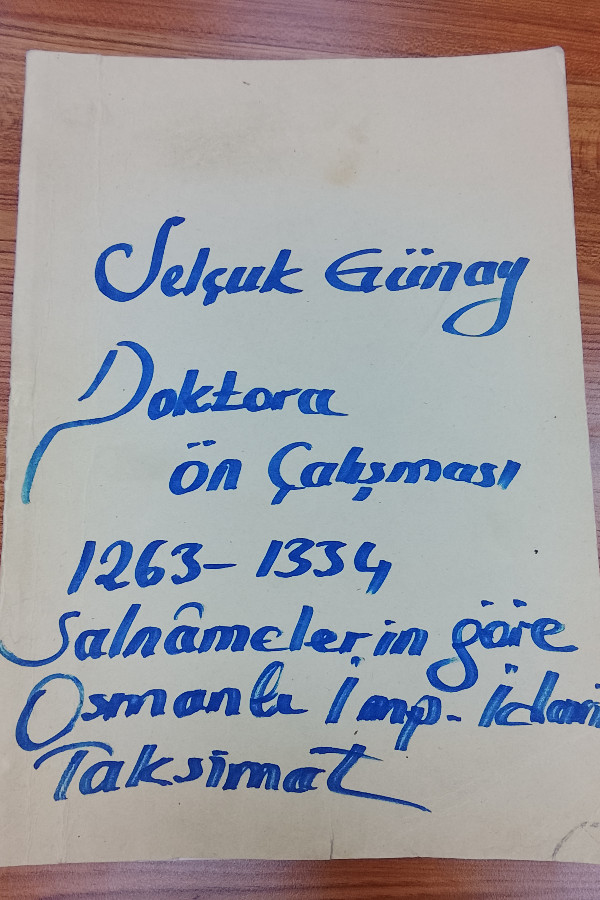 Selçuk Günay
Doktora
ön Çalışması
1263-1334
Salnâmelerin göre
Osmanlı İmp- İdari
Taksimat